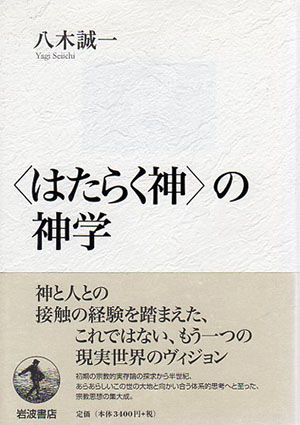 八木誠一
Yagi Seiichi
〈はたらく神〉の
神学
神と人との
接触の経験を踏まえた、
これではない、もう一つの
現実世界のヴィジョン
初期の宗教的実存論の探求から半世紀、
あらあらしいこの世の大地と向かい合う体系的思考へと至った、
宗教思想の集大成。
岩波書店
定価(本体3400円+税)